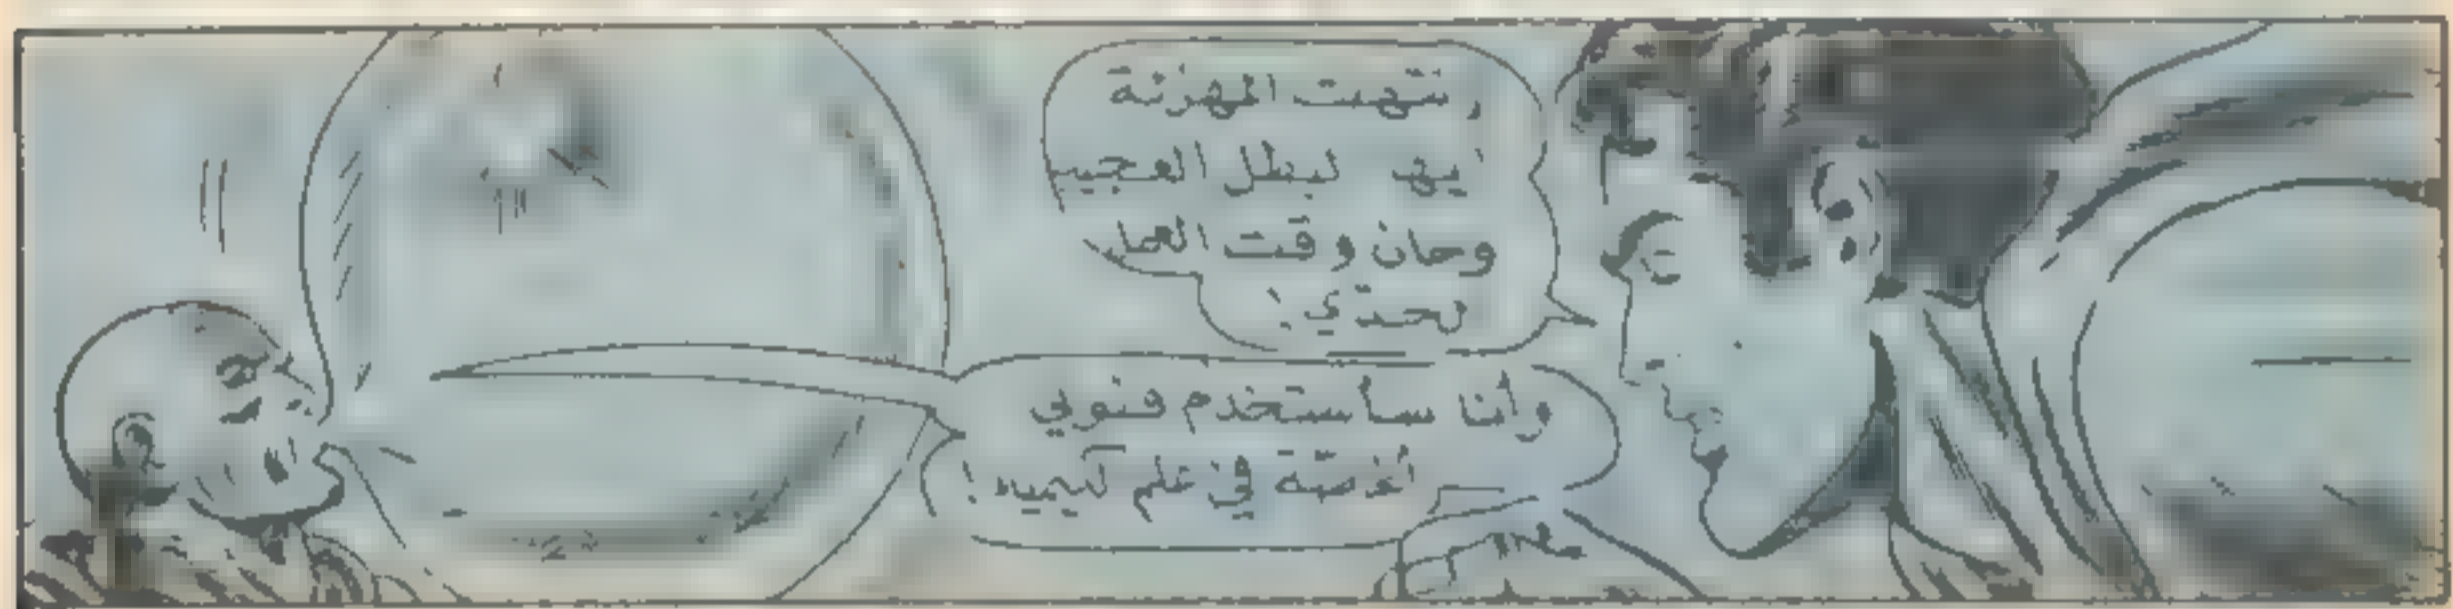 انتهت المهزلة
أيها البطل العجيب
وحان وقت العمل
الجدّي!
وأنا سأستخدم فنوني
الخاصّة في علم الكيمياء!